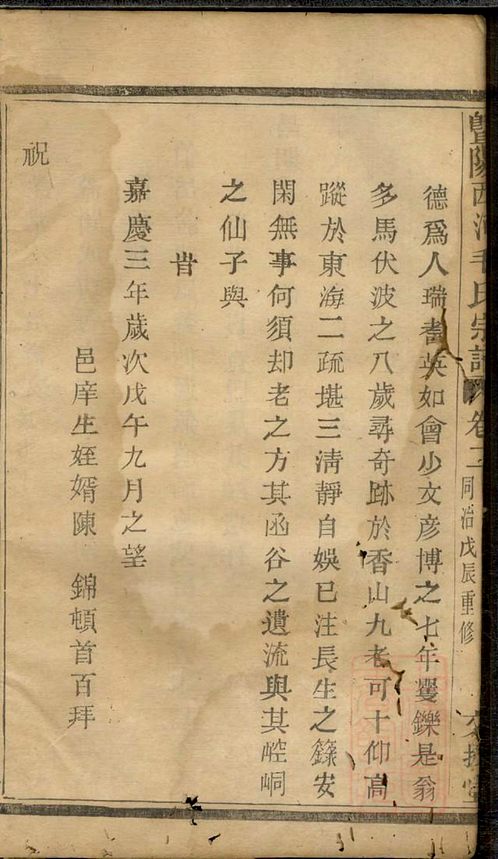 暨陽西河毛氏宗譜 卷二 同治戊辰重修
德爲人瑞耆英如會少文彦博之七年矍鑠是翁
多馬伏波之八歲尋奇跡於香山九老可十仰高
蹤於東海二疏堪三淸靜自娛已注長生之籙安
閑無事何須却老之方其函谷之遺流與其崆峒
之仙子與
旹
嘉慶三年歲次戊午九月之望
邑庠生姪婿陳 錦頓首百拜
祝